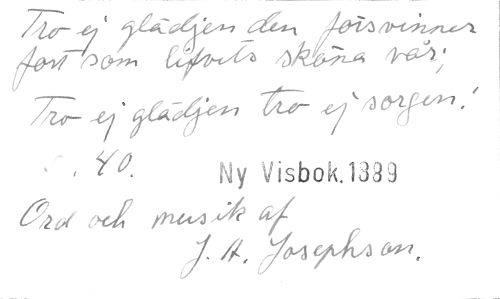 Tro ej glädjen den försvinner
fort som lifvets sköna vår;
Tro ej glädjen tro ej sorgen!
s. 40.
Ny Visbok. 1889
Ord och musik af
J. A. Josephson.